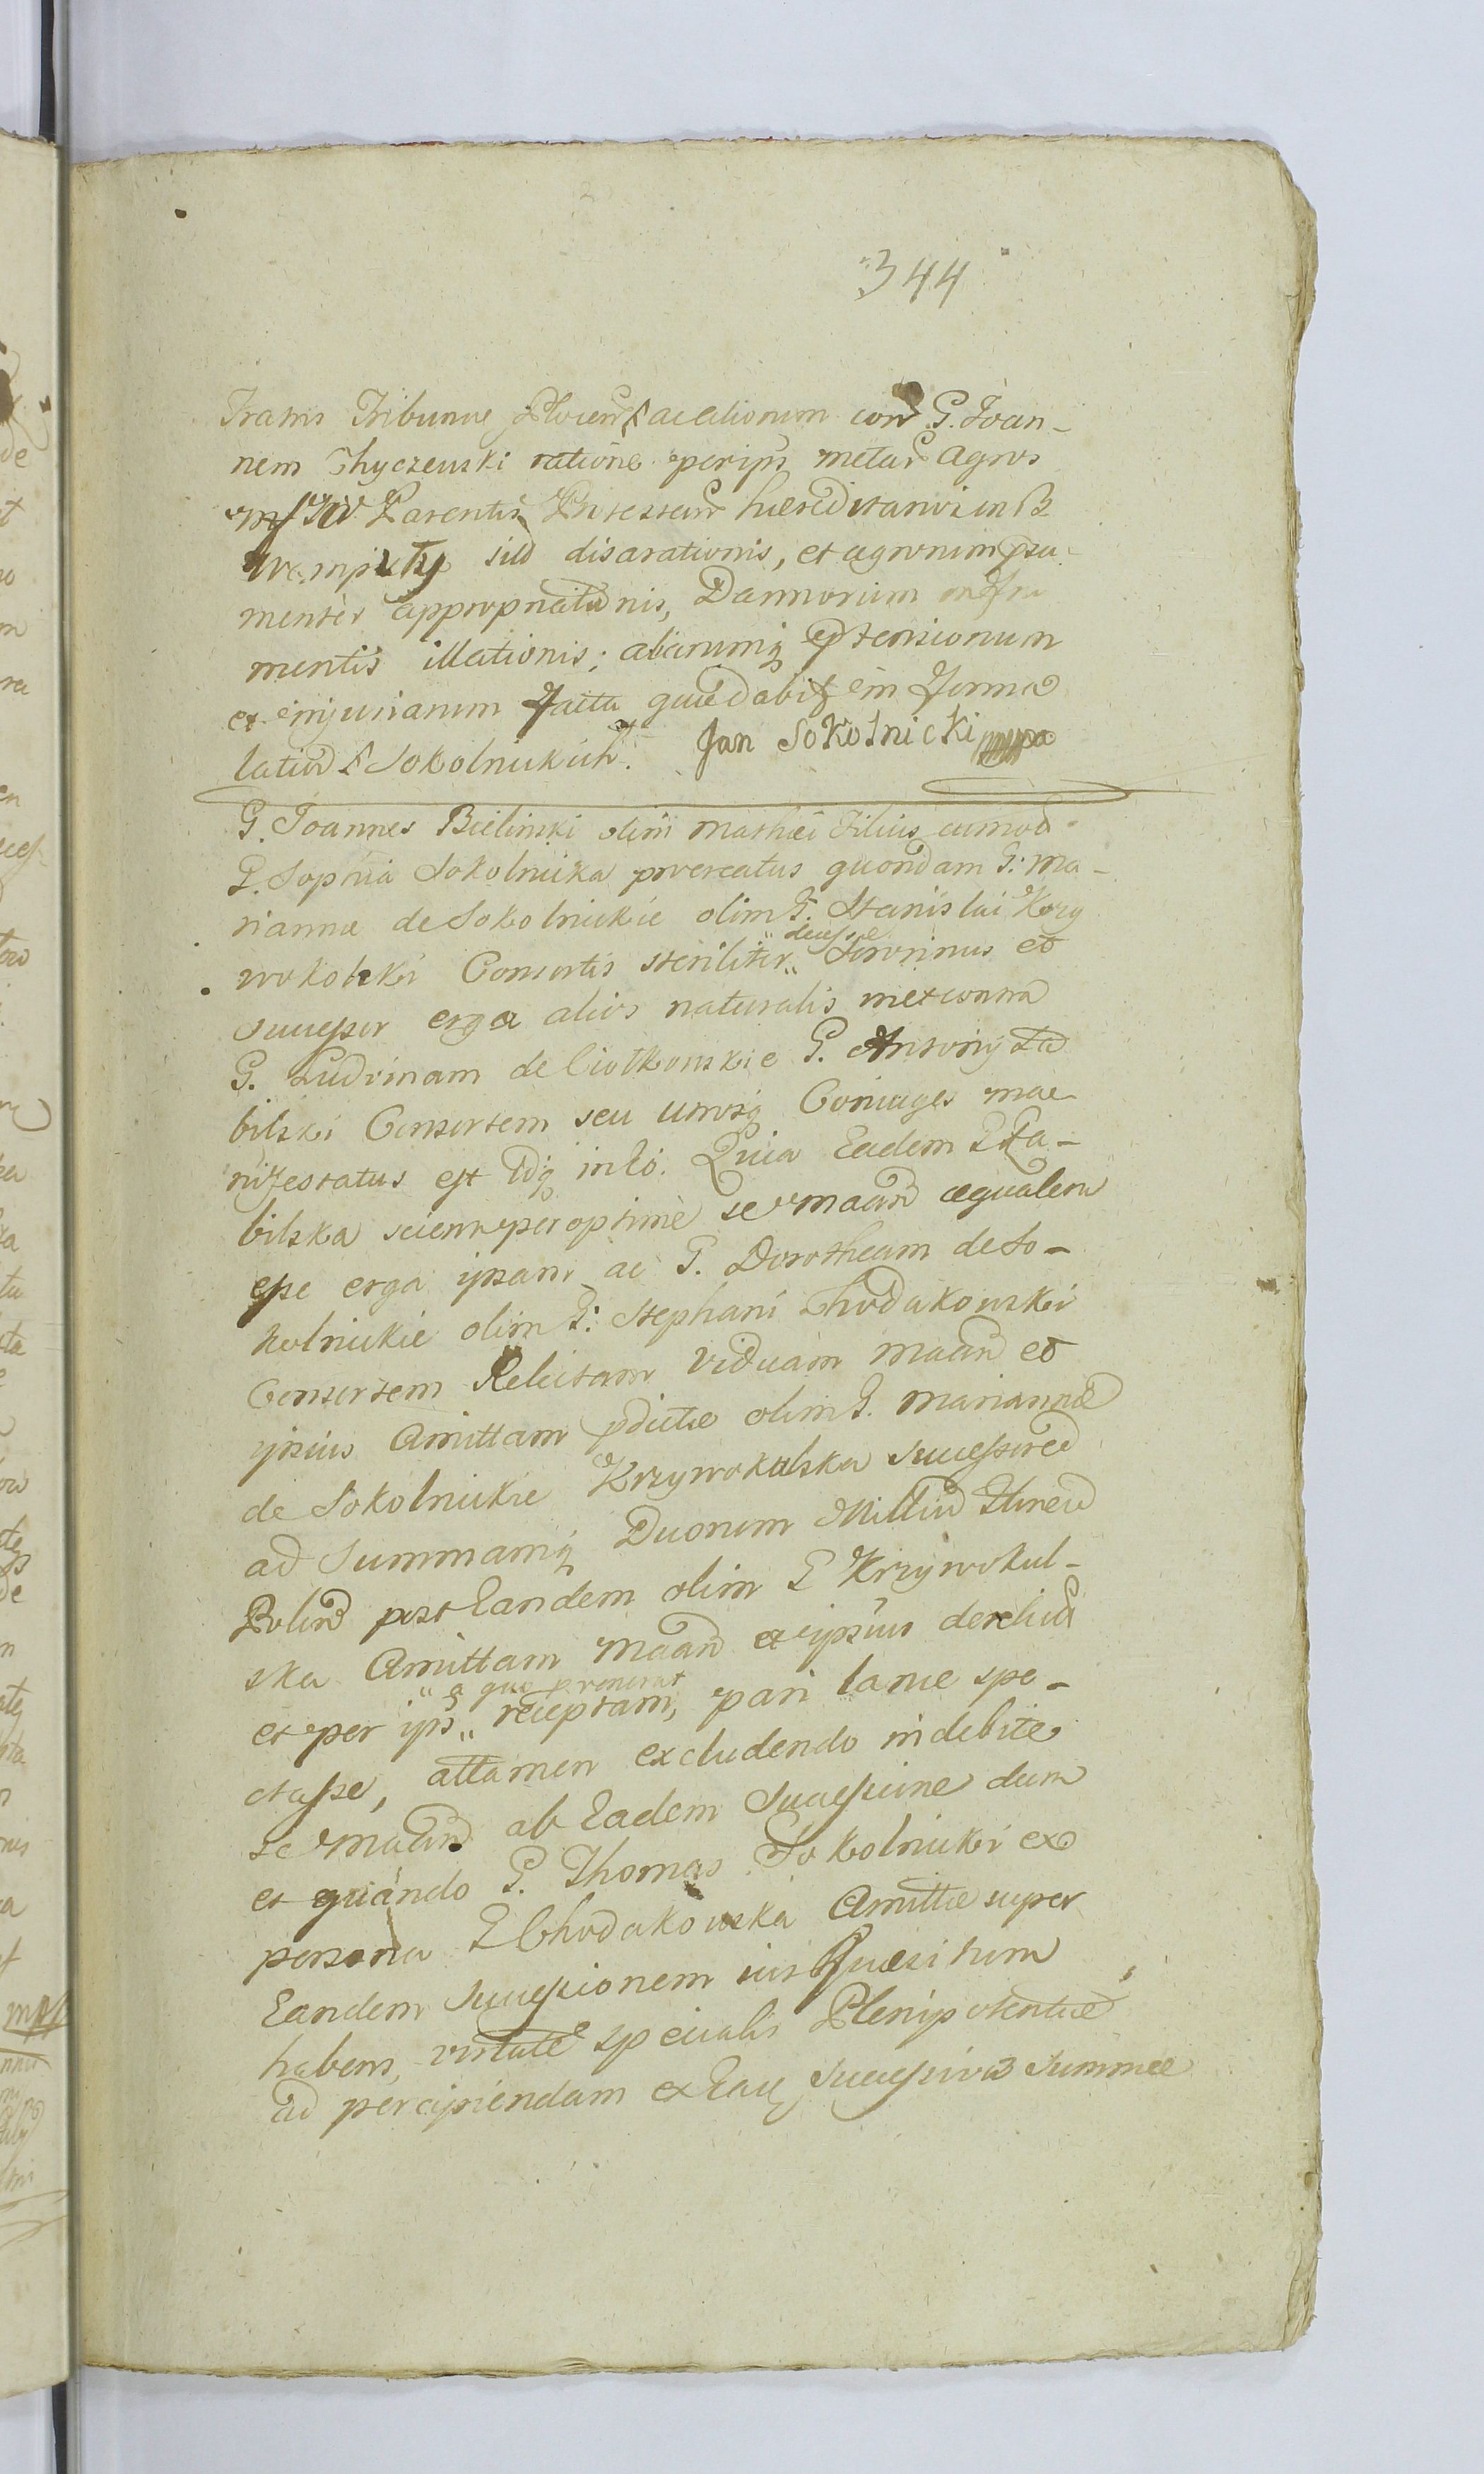 344
Fratris Tribunæ actionum con G. Joan-
nem Thyczewski ratione per ips metas Agros
Parentis hæreditarios in B
sild disarationis, et agrorum psu-
menter appropriationis, Damnorum
mentis illationis; aliarumq ptensionum
et injuriarum facta in forma
latiord S Sokolnickich. Jan Sokolnicki mppa
G. Joannes Bielinski olim Mathiei Filius cum
G. Sophia Sokolnicka procreatus quondam G. Ma-
riannæ de Sokolnickie olim G. Stanislai Krzy
wokolski Consortis steriliter „ decessæ Sororinus et
Successor erga alios naturalis met contra
G. Ludvinam de Ciołkowskie G. Antonij Za
bilski Consortem seu utrosq Coniuges ma-
nifestatus est Idq in Eo. Quia Eadem G Za-
bilska sciens peroptime se maand æqualem
esse erga ipsam ac G. Dorotheam de So-
kolnickie olim G. Stephani Chodakowski
Consortem Relictam Viduam maand et
ipsius Amittam pdictæ olim G. Mariannæ
de Sokolnickie Krzywokulska Successored
ad Summamq Duorum Milliud fflnord
Polind post Eandem olim G Krzywokul-
ska Amittam Maand et ipsius derelict
et per ips „ a quo pronunt receptam, pari lance spe-
ctasse, attamen excludendo indebite
se maand ab Eadem Successione dum
et quando G. Thomas Sokolnicki ex
persona G Chodakowska Amittæ super
Eandem Successionem ius Quæsitum
habens, virtute specialis Plenipotentiæ
ad percipiendam ex Eaq Successiva Summæ